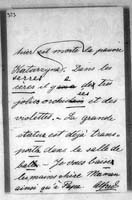 323
hier est morte la pauvre
Katuryna. Dans les
serres
ceres il y a des très
jolies orchidées et des
violettes. La grande
statue est déjà trans-
portée dans la salle de
bain – Je vous baise
les mains chère Maman
ainsi qu'à Papa. Alfred.